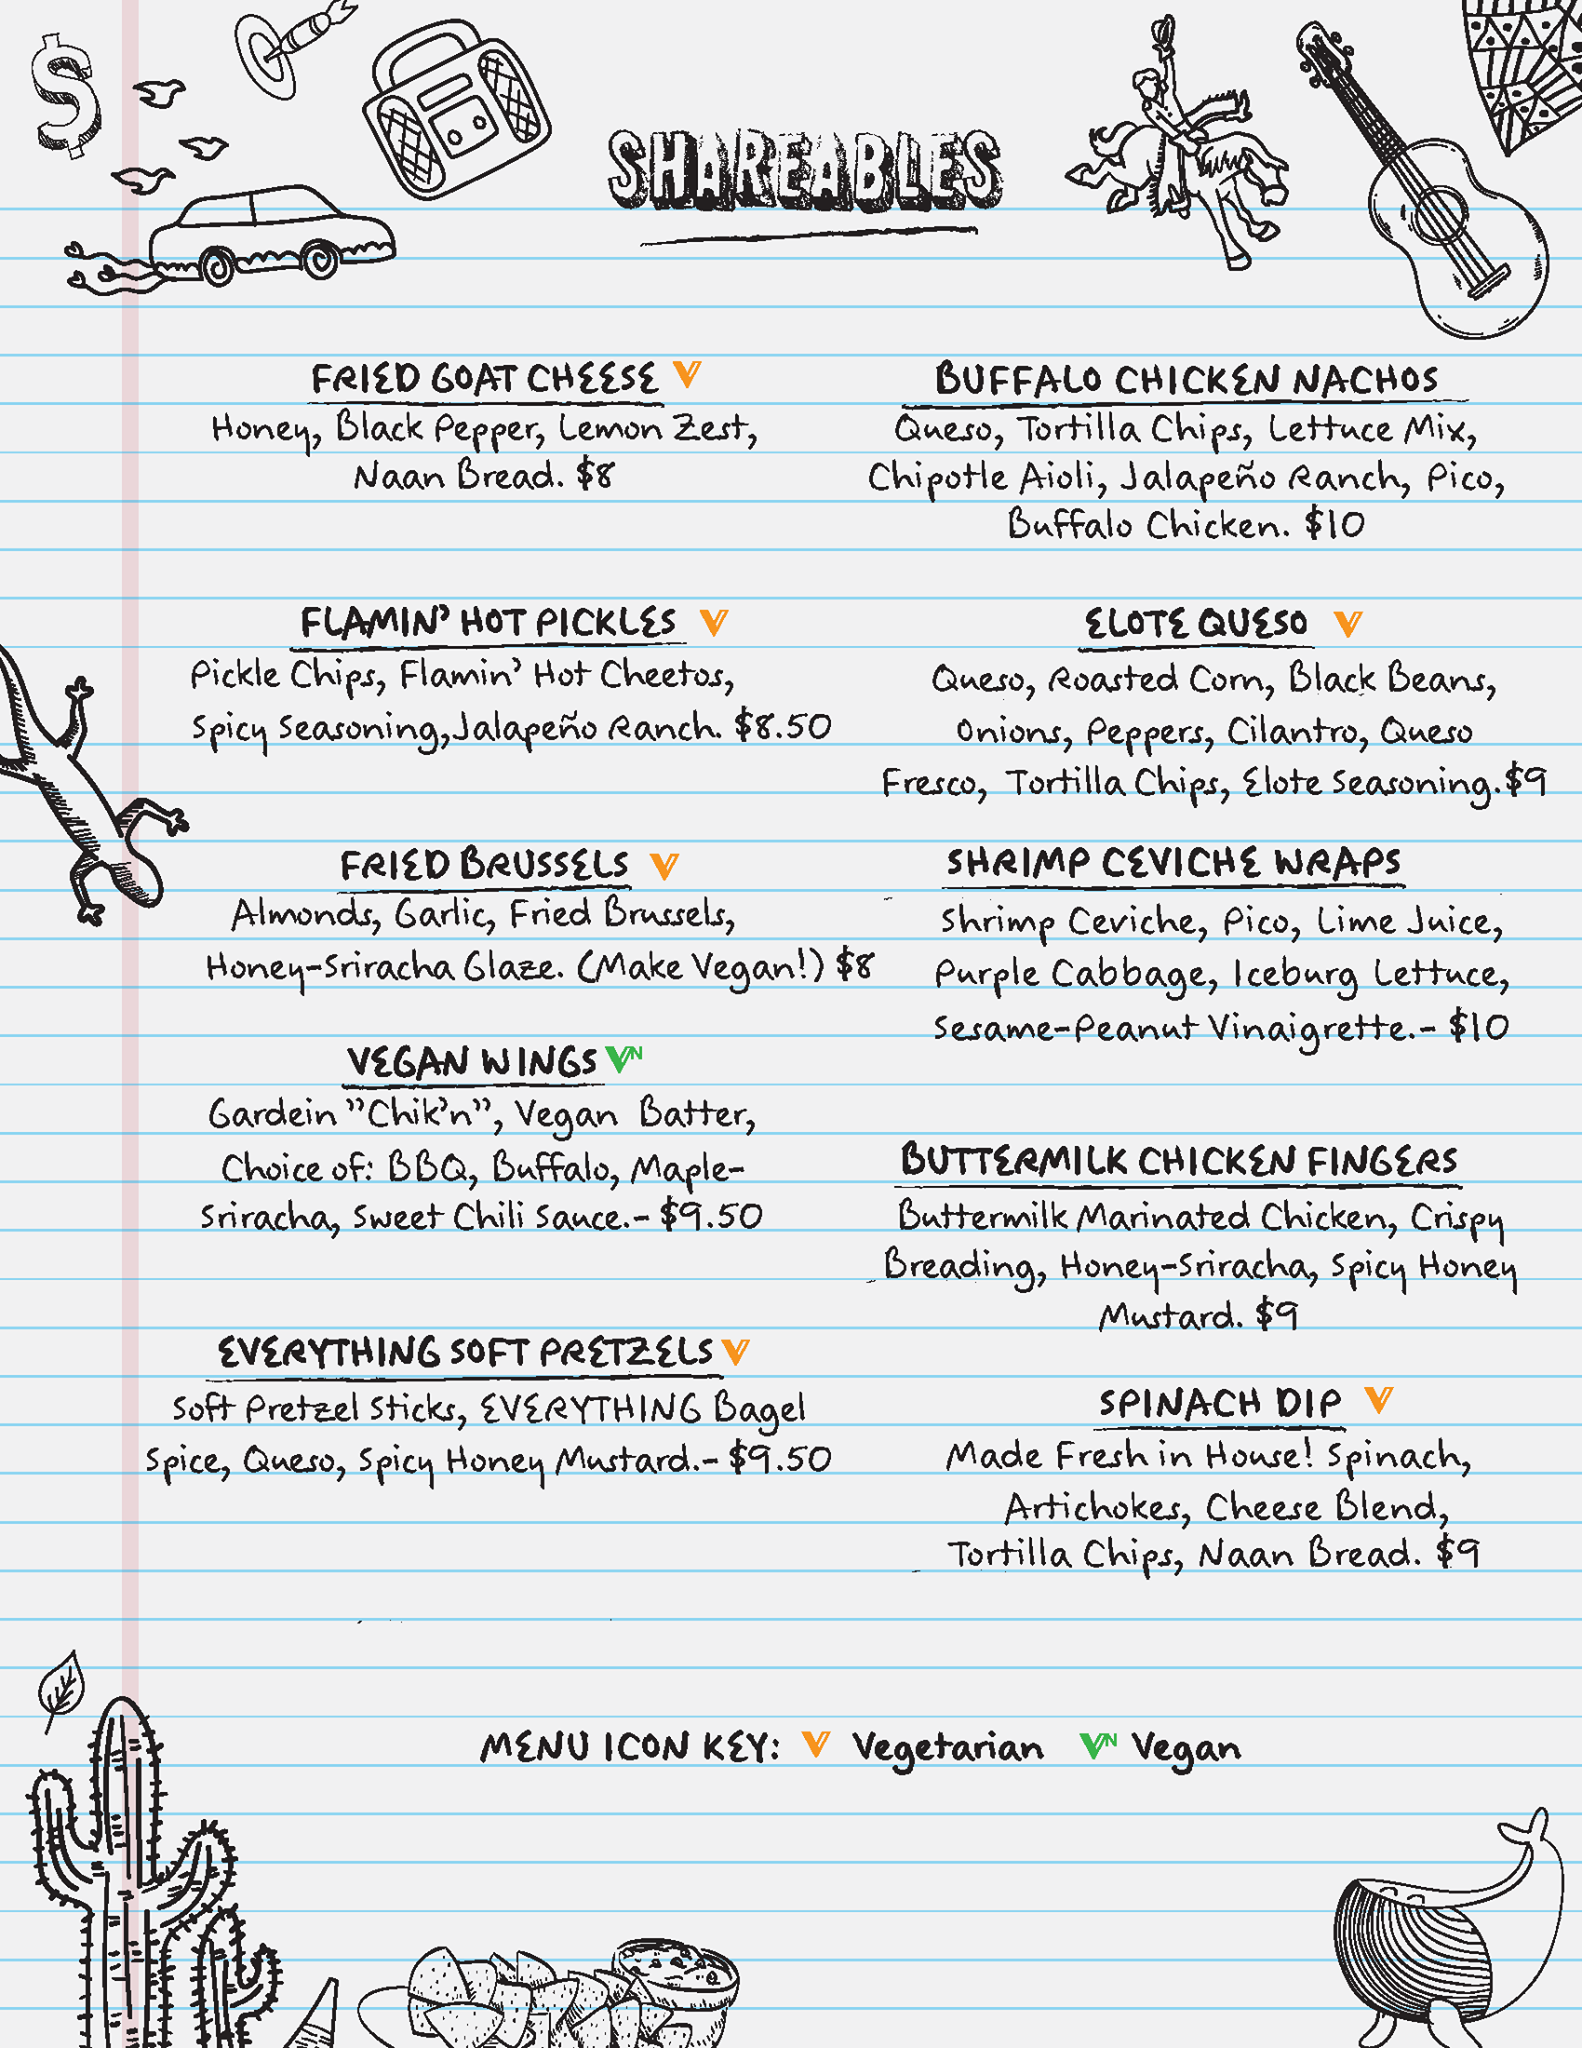 $
SHAREABLES
FRIED GOAT CHEESE V
Honey, Black Pepper, Lemon Zest,
Naan Bread. $8
FLAMIN' HOT PICKLES V
Pickle Chips, Flamin' Hot Cheetos,
Spicy Seasoning, Jalapeño Ranch. $8.50
FRIED BRUSSELS V
Almonds, Garlic, Fried Brussels,
Honey-Sriracha Glaze. (Make Vegan!) $8
VEGAN WINGS VN
Gardein "Chik'n", Vegan Batter,
Choice of: BBQ, Buffalo, Maple-
Sriracha, Sweet Chili Sauce.- $9.50
EVERYTHING SOFT PRETZELS V
Soft Pretzel Sticks, EVERYTHING Bagel
Spice, Queso, Spicy Honey Mustard.- $9.50
BUFFALO CHICKEN NACHOS
Queso, Tortilla Chips, Lettuce Mix,
Chipotle Aioli, Jalapeño Ranch, Pico,
Buffalo Chicken. $10
ELOTE QUESO V
Queso, Roasted Corn, Black Beans,
Onions, Peppers, Cilantro, Queso
Fresco, Tortilla Chips, Elote Seasoning. $9
SHRIMP CEVICHE WRAPS
Shrimp Ceviche, Pico, Lime Juice,
Purple Cabbage, Iceburg Lettuce,
Sesame-Peanut Vinaigrette.- $10
BUTTERMILK CHICKEN FINGERS
Buttermilk Marinated Chicken, Crispy
Breading, Honey-Sriracha, Spicy Honey
Mustard. $9
SPINACH DIP V
Made Fresh in House! Spinach,
Artichokes, Cheese Blend,
Tortilla Chips, Naan Bread. $9
MENU ICON KEY: V Vegetarian VN Vegan